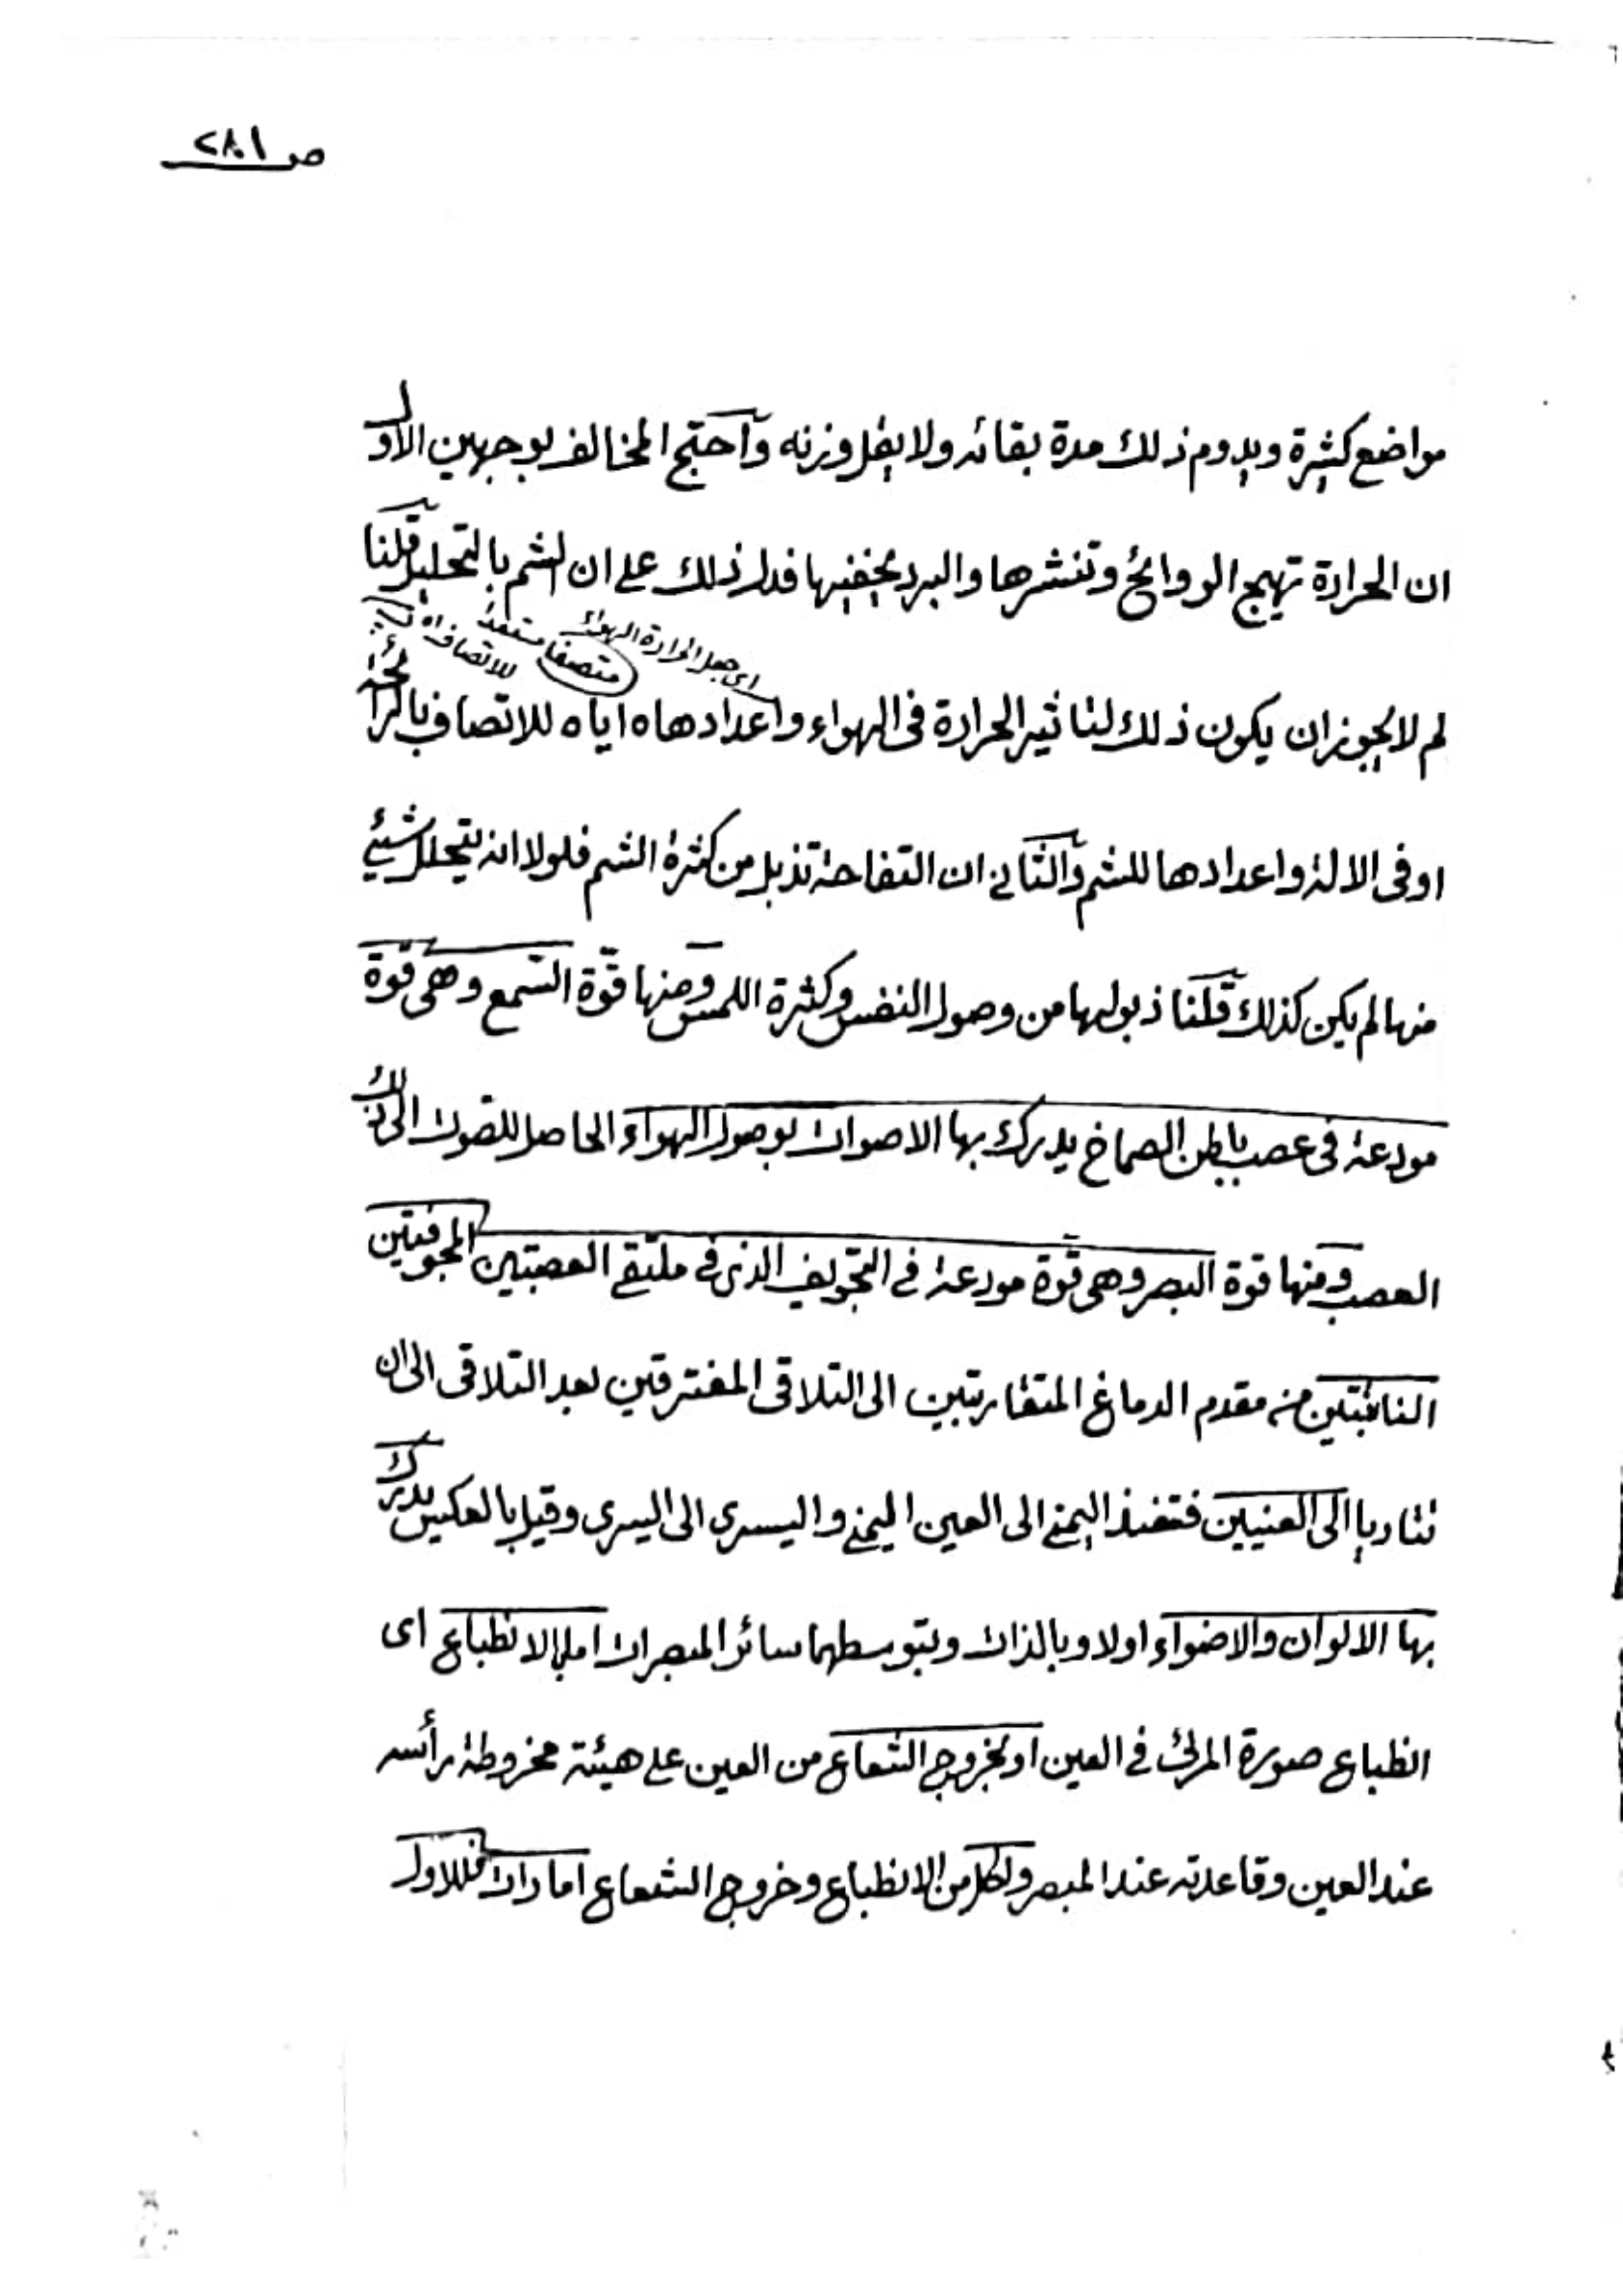 ص ٢٨١
مواضع كثيرة ويدوم ذلك مدة بقائه ولا يقل وزنه وآحتج المخالف بوجهين الأول
ان الحرارة تهيج الروائح وتنشرها والبرد يخفيها فدل ذلك على ان الشم بالتحليل قلنا
اى جعل الحرارة الهواء متصفا مستعدا للاتصاف
لم لا يجوز ان يكون ذلك لتاثير الحرارة فى الهواء واعدادها ه اياه للاتصاف بالرائحة
او فى الالة واعدادها للشم وآلثانى ان التفاحة تذبل من كثرة الشم فلولا انه يتحلل شيئ
منها لم يكن كذلك قلنا ذبولها من وصول النفس وكثرة اللمس ومنها قوّة السّمع وهى قوّة
مودعة فى عصب باطن الصماخ يدرك بها الاصوات بوصول الهواء الحاصل للصوت الى ذلك
العصب ومنها قوة البصر وهى قوّة مودعة فى التجويف الذى فى ملتقى العصبتين المجوفتين
النابتتين من مقدم الدماغ المتقاربتين الى التلاقى المفترقين بعد التلاقى الى ان
تتاديا الى العنيين فتنفذ اليمنى الى العين اليمنى واليسرى الى اليسرى وقيل بالعكس يدرك
بها الالوان والاضواء اولا وبالذات وبتوسطهما سائر المبصرات اما بالانطباع اى
انطباع صورة المرئ فى العين او بخروج الشعاع من العين على هيئة مخروطة رأسه
عند العين وقاعدته عند المبصر ولكل من الانطباع وخروج الشعاع امارات فللاول